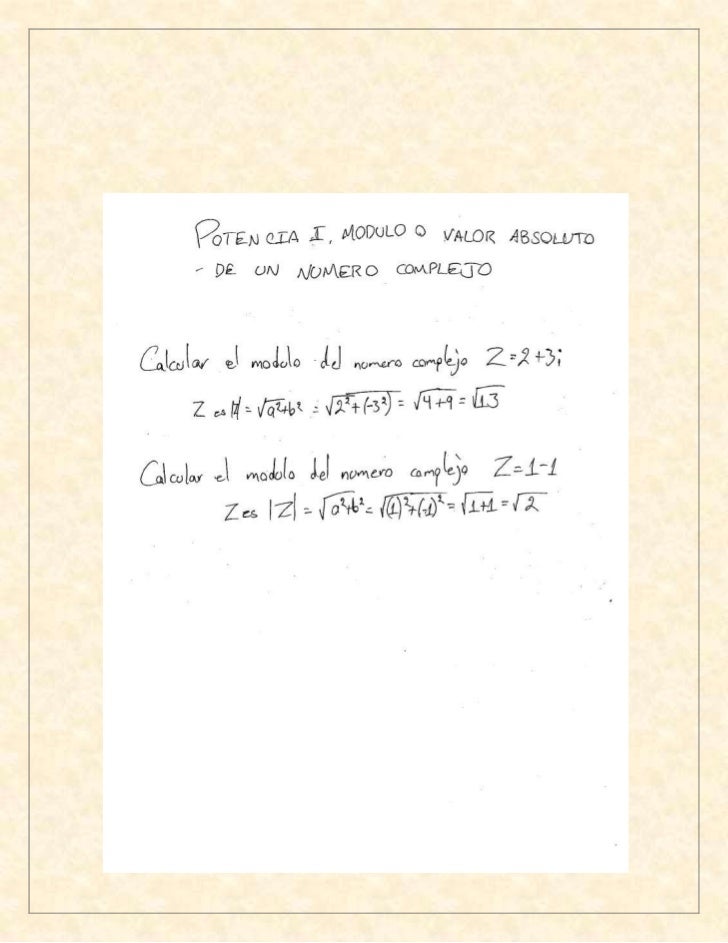 POTENCIA I, MODULO O VALOR ABSOLUTO
- DE UN NUMERO COMPLEJO
Calcular el modolo del numero complejo Z=2+3i
Z es |Z| = √a²+b² = √2²+(-3²) = √4+9 = √13
Calcular el modolo del numero complejo Z=1-1
Z es |Z| = √a²+b² = √(1)²+(-1)² = √1+1 = √2